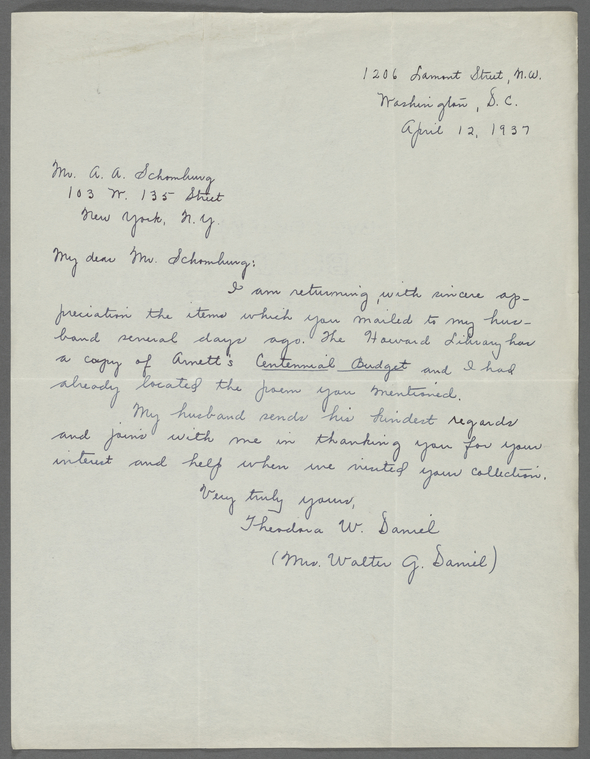 1206 Lamont Street, N.W.
Washington, D.C.
April 12, 1937
Mr. A. A. Schomburg
103 W. 135 Street
New York, N.Y.
My dear Mr. Schomburg:
I am returning, with sincere ap-
preciation the items which you mailed to my hus-
band several days ago. The Howard Library has
a copy of Arnett's Centennial Budget and I had
already located the poem you mentioned.
My husband sends his kindest regards
and joins with me in thanking you for your
interest and help when we visited your collection.
Very truly yours,
Theodora W. Daniel
(Mrs. Walter G. Daniel)